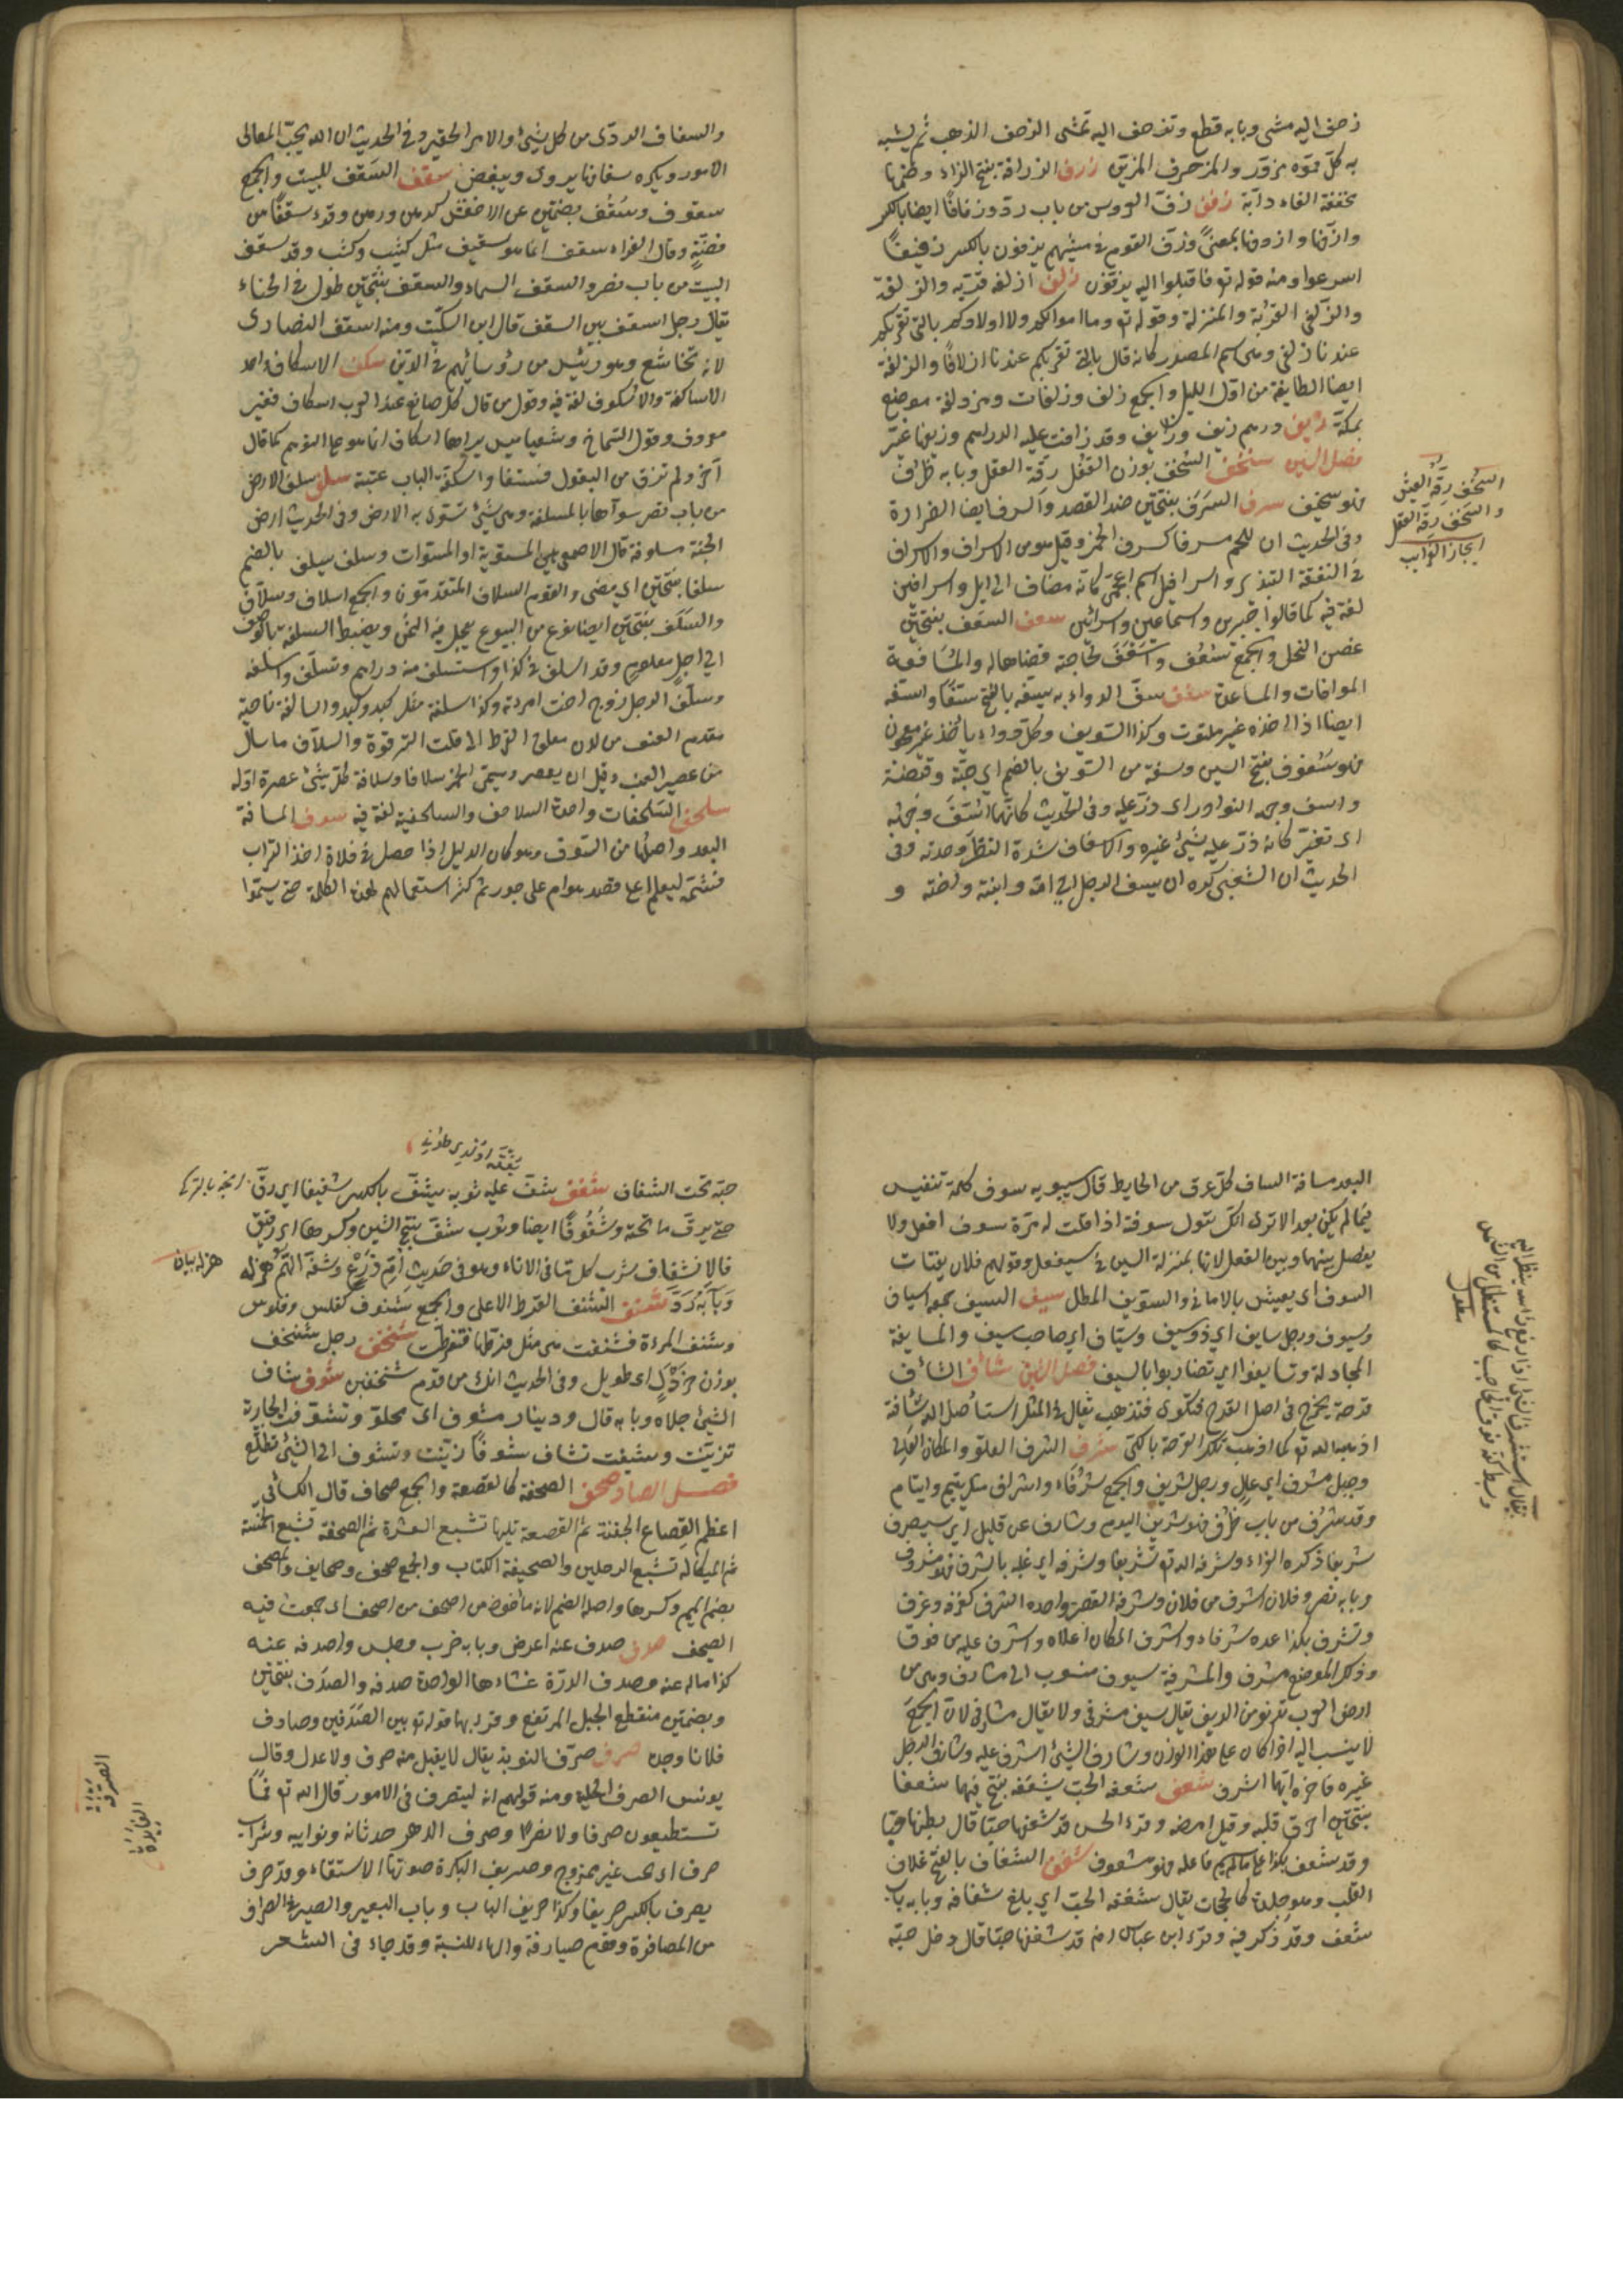 زحف اليه مشى وبابه قطع وتزحف اليه تمشى الزخرف الذهب ثم يشبه
به كل مموه مزور والمزخرف المزين زرف الزرافة بفتح الزاء وضمها
مخففة الفاء دآبة زفف زف العروس من باب رد وزفافا ايضا بالكسر
وازفها وازدفها بمعنى وزف القوم فى مشيهم يزفون بالكسر زفيفا
اسرعوا ومنه قوله تع فاقبلوا اليه يزفون زلف ازلفه قربه والزلفة
والزلفى القربة والمنزلة وقوله تع وما اموالكم ولا اولادكم بالتى تقربكم
عندنا زلفى وهى اسم المصدر كانه قال بالتى تقربكم عندنا ازلافا والزلفة
ايضا الطايفة من اول الليل والجمع زلف وزلفات ومزدلفة موضع
بمكة زيف درهم زيف وزايف وقد زافت عليه الدراهم وزيفها غيره
فصل السين سخف السخف بوزن القفل رقة العقل وبابه ظرف
فهو سخيف سرف السرف بفتحتين ضد القصد والسرف ايضا الضراوة
وفى الحديث ان للحم سرفا كسرف الخمر وقيل هو من الاسراف والاسراف
فى النفقة التبذير واسرافيل اسم اعجمى كانه مضاف الى ايل واسرافين
لغة فيه كما قالوا جبرين واسماعين واسرائين سعف السعف بفتحتين
غصن النخل والجمع سعف واسعف بحاجته قضاها له والمساعفة
المواتات والمساعدة سفف سف الدواء به يسفه بالفتح سفا واستفه
ايضا اذا اخذه غير ملتوت وكذا السويق وكل دواء يأخذ غير معجون
فهو سفوف بفتح السين وسفة من السويق بالضم اى حبة وقبضة
واسف وجهه النؤور اى ذر عليه وفى الحديث كانما اسف وجهه
اى تغير كانه ذر عليه شيئ غيره والاسفاف شدة النظر وحدته وفى
الحديث ان الشعبى كره ان يسف الرجل الى امه وابنته واخته و
السخف رقة العيش
والسخف رقة العقل
والسفاف الردى من كل شيئ والامر الحقير وفى الحديث ان الله يحب المعالى
الامور ويكره سفسافها يروى ويبغض سقف السقف للبيت والجمع
سقوف وسقف بضمتين عن الاخفش كرهن ورهن وقرء سقفا من
فضة وقال الفراء سقف انما هو سقيف مثل كثيب وكثب وقد سقف
البيت من باب نصر والسقف السماء والسقف بفتحتين طول فى انحناء
يقال رجل اسقف بين السقف قال ابن السكيت ومنه اسقف النصارى
لانه يتخاشع وهو رئيس من رؤسائهم فى الدين سكف الاسكاف واحد
الاساكفة والاسكوف لغة فيه وقول من قال كل صانع عند العرب اسكاف فغير
معروف وقول الشماخ وشعبتا ميس براها اسكاف انما هو على التوهم كما قال
آخر ولم تذق من البقول فستقا واسكفة الباب عتبته سلف سلف الارض
من باب نصر سوآها بالمسلفة وهى شيئ تسوى به الارض وفى الحديث ارض
الجنة مسلوفة قال الاصمعى هى المستوية او المستوات وسلف يسلف بالضم
سلفا بفتحتين اى مضى والقوم السلاف المتقدمون والجمع اسلاف وسلاف
والسلف بفتحتين ايضا نوع من البيوع يعجل فيه الثمن ويضبط السلعة بالوصف
الى اجل معلوم وقد اسلف فى كذا واستسلف منه دراهم وتسلف واسلفه
وسلف الرجل زوج اخت امرءته وكذا سلفه مثل كبد وكبد والسالفة ناحية
مقدم العنق من لدن معلق القرط الى قلت الترقوة والسلاف ما سال
من عصير العنب قبل ان يعصر وسمى الخمر سلافا وسلافة كل شيئ عصرة اوله
سلحف السلحفات واحدة السلاحف والسلحفية لغة فيه سوف المسافة
البعد واصلها من السوف وهو كان الدليل اذا حصل فى فلاة اخذ التراب
فشمه ليعلم اعلى قصد هو ام على جور ثم كثر استعمالهم لهذه الكلمة حتى سموا
البعد مسافة الساف كل عرق من الحايط قال سيبويه سوف كلمة تنفيس
فيما لم يكن بعد الا ترى انك تقول سوفته اذا قلت له مرة سوف افعل ولا
يفصل بينها وبين الفعل لانها بمنزلة السين فى سيفعل وقولهم فلان يقتات
السوف اى يعيش بالامانى والتسويف المطل سيف السيف جمعه اسياف
وسيوف ورجل سايف اى ذو سيف وسياف اى صاحب سيف والمسايفة
المجادلة وتسايفوا اى تضاربوا بالسيف فصل الشين شأف الشأف
قرحة يخرج فى اصل القدم فتكوى فتذهب يقال فى المثل استأصل الله شأفته
اذهبه الله تع كما اذهب تلك القرحة بالكى شرف الشرف العلو والمكان العالى
وجبل مشرف اى عال ورجل شريف والجمع شرفاء واشراف مثل يتيم وايتام
وقد شرف من باب ظرف فهو شريف اليوم وشارف عن قليل اى سيصير
شريفا ذكره الفراء وشرفه الله تع تشريفا وشرفه اى غلبه بالشرف فهو مشروف
وبابه نصر وفلان اشرف من فلان وشرفة القصر واحدة الشرف كغرفة وغرف
وتشرف بكذا عده شرفا واشرف المكان اعلاه واشرف عليه من فوق
وذلك الموضع مشرف والمشرفية سيوف منسوب الى مشارف وهى من
ارض العرب تدنو من الريف يقال سيف مشرفى ولا يقال مشارفى لان الجمع
لا ينسب اليه اذا كان على هذا الوزن وشارف الشيئ اشرف عليه وشارف الرجل
غيره فاخره ايهما اشرف شعف شعفه الحب يشعفه بفتح فيهما شعفا
بفتحتين احرق قلبه وقيل امرضه وقرء الحسن قد شعفها حبا قال بطنها حبا
وقد شعف بكذا على ما لم يسم فاعله فهو مشعوف شغف الشغاف بالفتح غلاف
القلب وهو جلدة كالحجاب يقال شغفه الحب اى بلغ شغافه وبابه باب
شعف وقد ذكر فيه وقرء ابن عباس رضه قد شغفها حبا قال دخل حبه
حبه تحت الشغاف شفف شف عليه ثوبه يشف بالكسر شفيفا اى رق
حتى يرى ما تحته وشفوفا ايضا وثوب شف بفتح الشين وكسرها اى رقيق
فالاشتفاف شرب كل ما فى الاناء وهو فى حديث ام زرع وشفه الهم هزله
وبابه رد شنف الشنف القرط الاعلى والجمع شنوف كفلس وفلوس
وشنف المرءة فتشنفت هى مثل قرطها فتقرطت شنخف رجل شنخف
بوزن جردحل اى طويل وفى الحديث انك من قوم شنخفين شوف شاف
الشيئ جلاه وبابه قال ودينار مشوف اى مجلو وتشوفت الجارية
تزينت وشيفت تشاف شوفا زينت وتشوف الى الشيئ تطلع
فصل الصاد صحف الصحفة كالقصعة والجمع صحاف قال الكسائى
اعظم القصاع الجفنة ثم القصعة تليها تشبع العشرة ثم الصحفة تشبع الخمسة
ثم الميكالة تشبع الرجلين والصحيفة الكتاب والجمع صحف وصحايف والمصحف
بضم الميم وكسرها واصله الضم لانه مأخوذ من اصحف من اصحف اى جمعت فيه
الصحف صدف صدف عنه اعرض وبابه ضرب وجلس واصدفه عنه
كذا اماله عنه وصدف الدرة غشاءها الواحدة صدفه والصدف بفتحتين
وبضمتين منقطع الجبل المرتفع وقرئ بهما قوله تع بين الصدفين وصادف
فلانا وجده صرف صرف التوبة يقال لا يقبل منه صرف ولا عدل وقال
يونس الصرف الحيلة ومنه قولهم انه ليتصرف فى الامور قال الله تع فما
تستطيعون صرفا ولا نصرا وصرف الدهر حدثانه ونوايبه وشراب
صرف اى بحت غير ممزوج وصريف البكرة صوتها الاستقاء وقد صرف
يصرف بالكسر صريفا وكذا صريف الباب وناب البعير والصيرف الصراف
من المصارفة وقوم صيارفة والهاء للنسبة وقد جاء فى الشعر